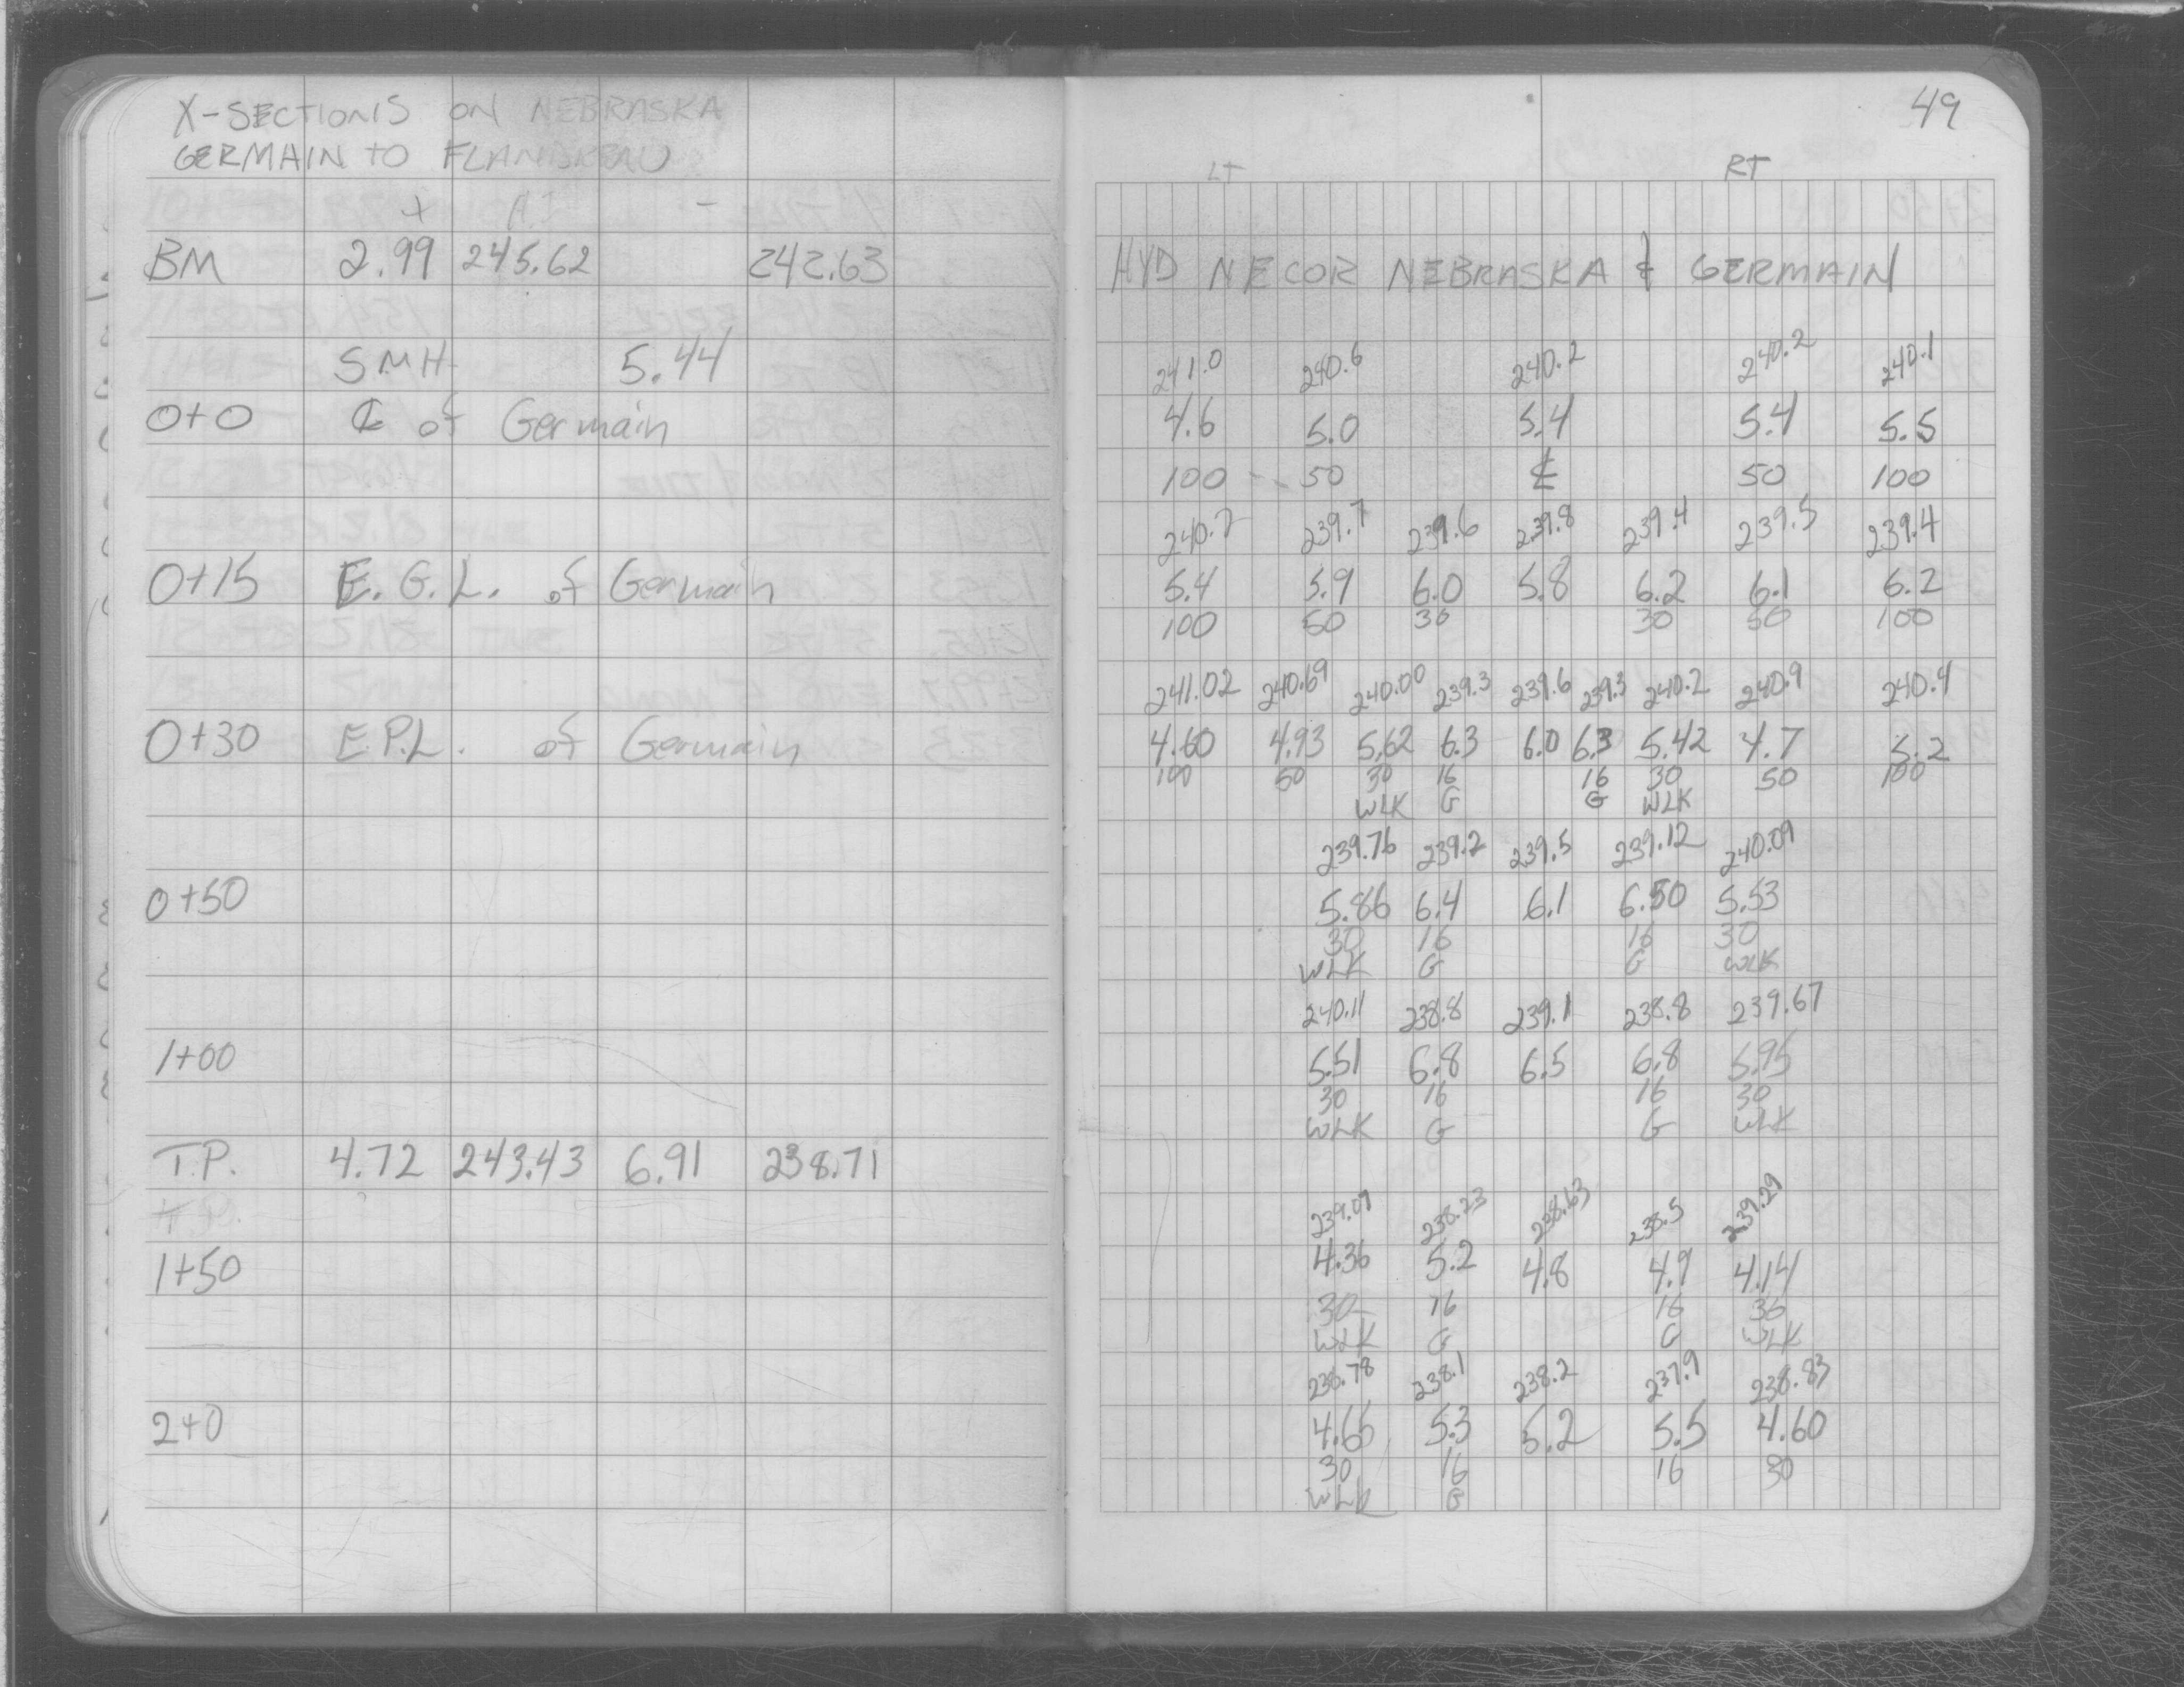 X-SECTIONS ON NEBRASKA
GERMAIN TO FLANDREAU
+ HI -
BM 2.99 245.62 242.63
SMH 5.44
0+0 ℄ of Germain
0+15 E.G.L. of Germain
0+30 E.P.L. of Germain
0+50
1+00
T.P. 4.72 243.43 6.91 238.71
T.P.
1+50
2+0
49
LT RT
HYD NE COR NEBRASKA & GERMAIN
241.0 240.6 240.2 240.2 240.1
4.6 5.0 5.4 5.4 5.5
100 50 ℄ 50 100
240.2 239.7 239.6 239.8 239.4 239.5 239.4
5.4 5.9 6.0 5.8 6.2 6.1 6.2
100 50 30 30 50 100
241.02 240.69 240.00 239.3 239.6 239.3 240.2 240.9 240.4
4.60 4.93 5.62 6.3 6.0 6.3 5.42 4.7 5.2
100 50 30 16 16 30 50 100
WLK G G WLK
239.76 239.2 239.5 239.12 240.09
5.86 6.4 6.1 6.50 5.53
30 16 16 30
WLK G G WLK
240.11 238.8 239.1 238.8 239.67
5.51 6.8 6.5 6.8 5.95
30 16 16 30
WLK G G WLK
239.07 238.23 238.63 238.5 239.29
4.36 5.2 4.8 4.9 4.14
30 16 16 30
WLK G G WLK
238.78 238.1 238.2 237.9 238.83
4.65 5.3 5.2 5.5 4.60
30 16 16 30
WLK G